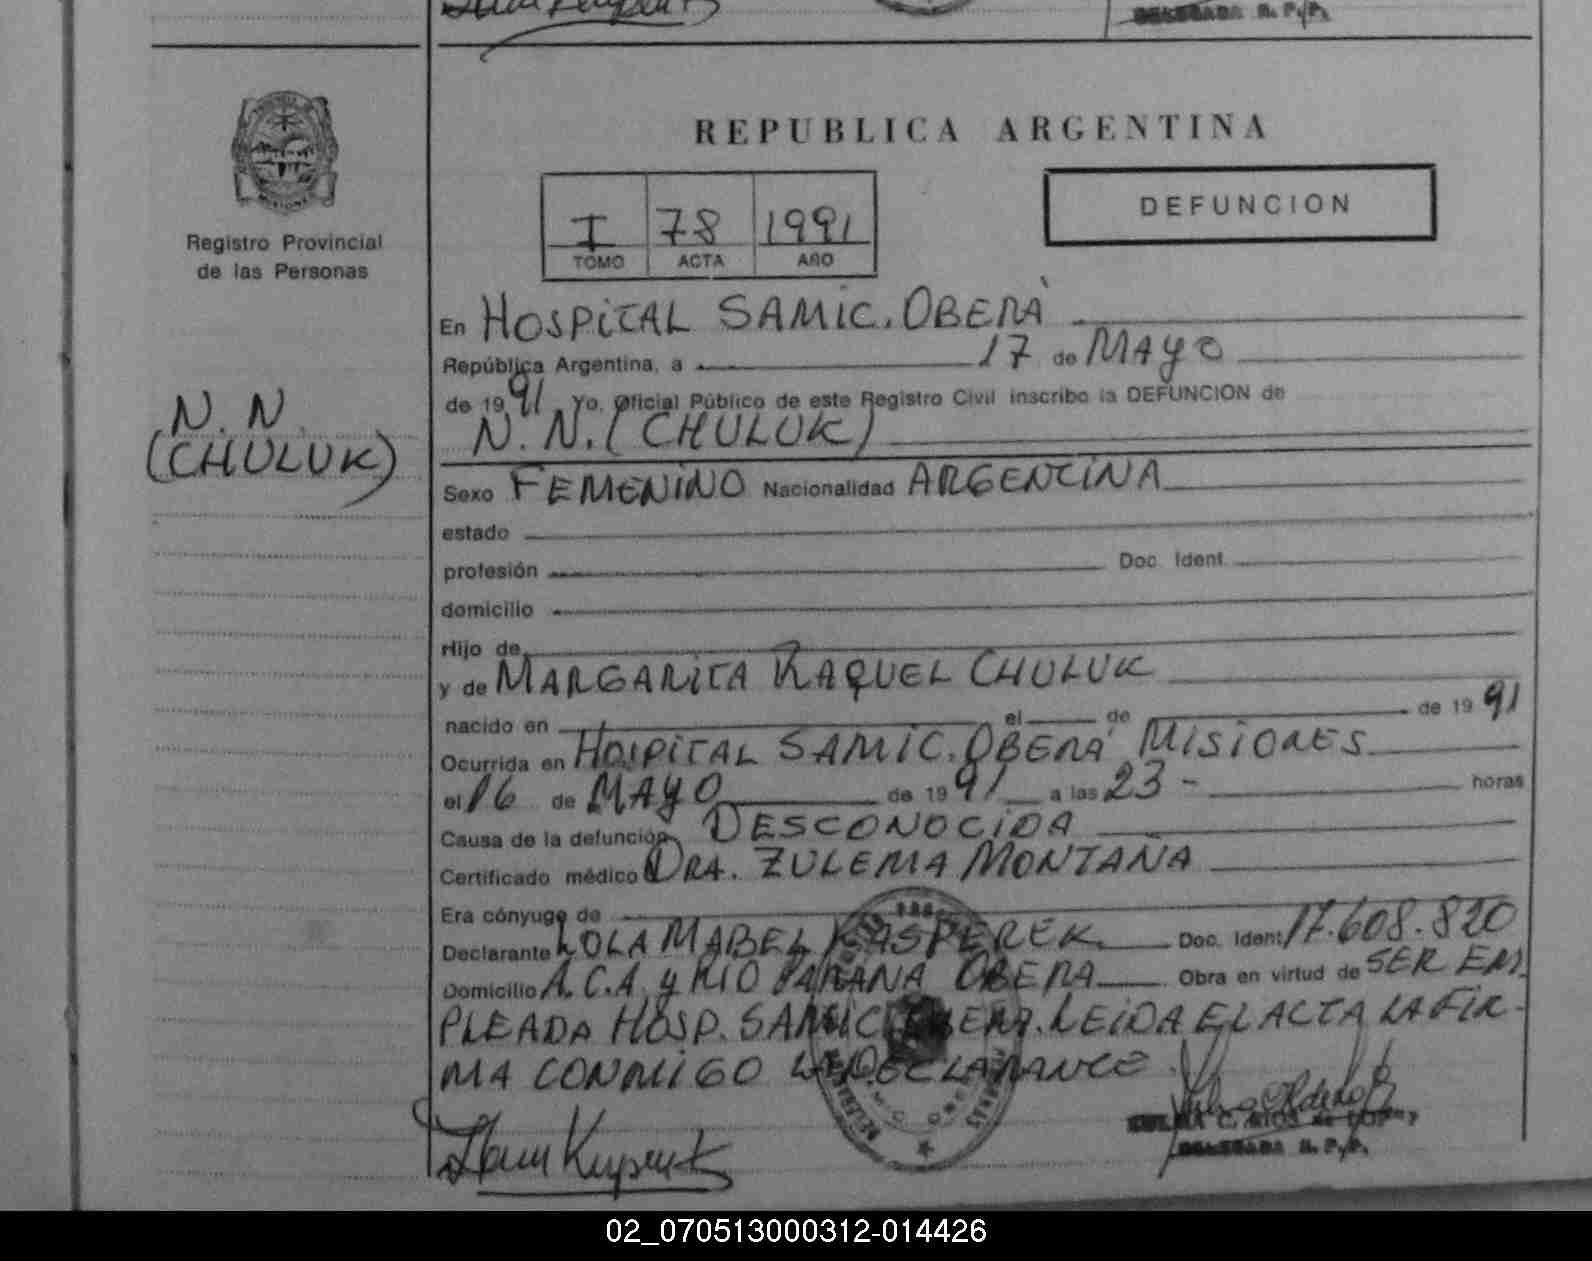 DELEGADA R. P. P.
Registro Provincial
de las Personas
N. N.
(CHULUK)
REPUBLICA ARGENTINA
I 78 1991
TOMO ACTA AÑO
DEFUNCION
En HOSPITAL SAMIC. OBERÁ
República Argentina, a 17 de MAYO
de 1991 Yo, Oficial Público de este Registro Civil inscribo la DEFUNCION de
N. N. (CHULUK)
Sexo FEMENINO Nacionalidad ARGENTINA
estado
profesión Doc. Ident.
domicilio
Hijo de
y de MARGARITA RAQUEL CHULUK
nacido en el de de 1991
Ocurrida en HOSPITAL SAMIC. OBERÁ MISIONES
el 16 de MAYO de 1991 a las 23 - horas
Causa de la defunción DESCONOCIDA
Certificado médico DRA. ZULEMA MONTAÑA
Era cónyuge de
Declarante LOLA MABEL KASPEREK Doc. Ident 17.608.820
Domicilio A. C. A. y RIO PARANA OBERA Obra en virtud de SER EM
PLEADA HOSP. SAMIC OBERA. LEIDA EL ACTA LA FIR-
MA CONMIGO LA DECLARANTE
DELEGADA R. P. P.
02_070513000312-014426